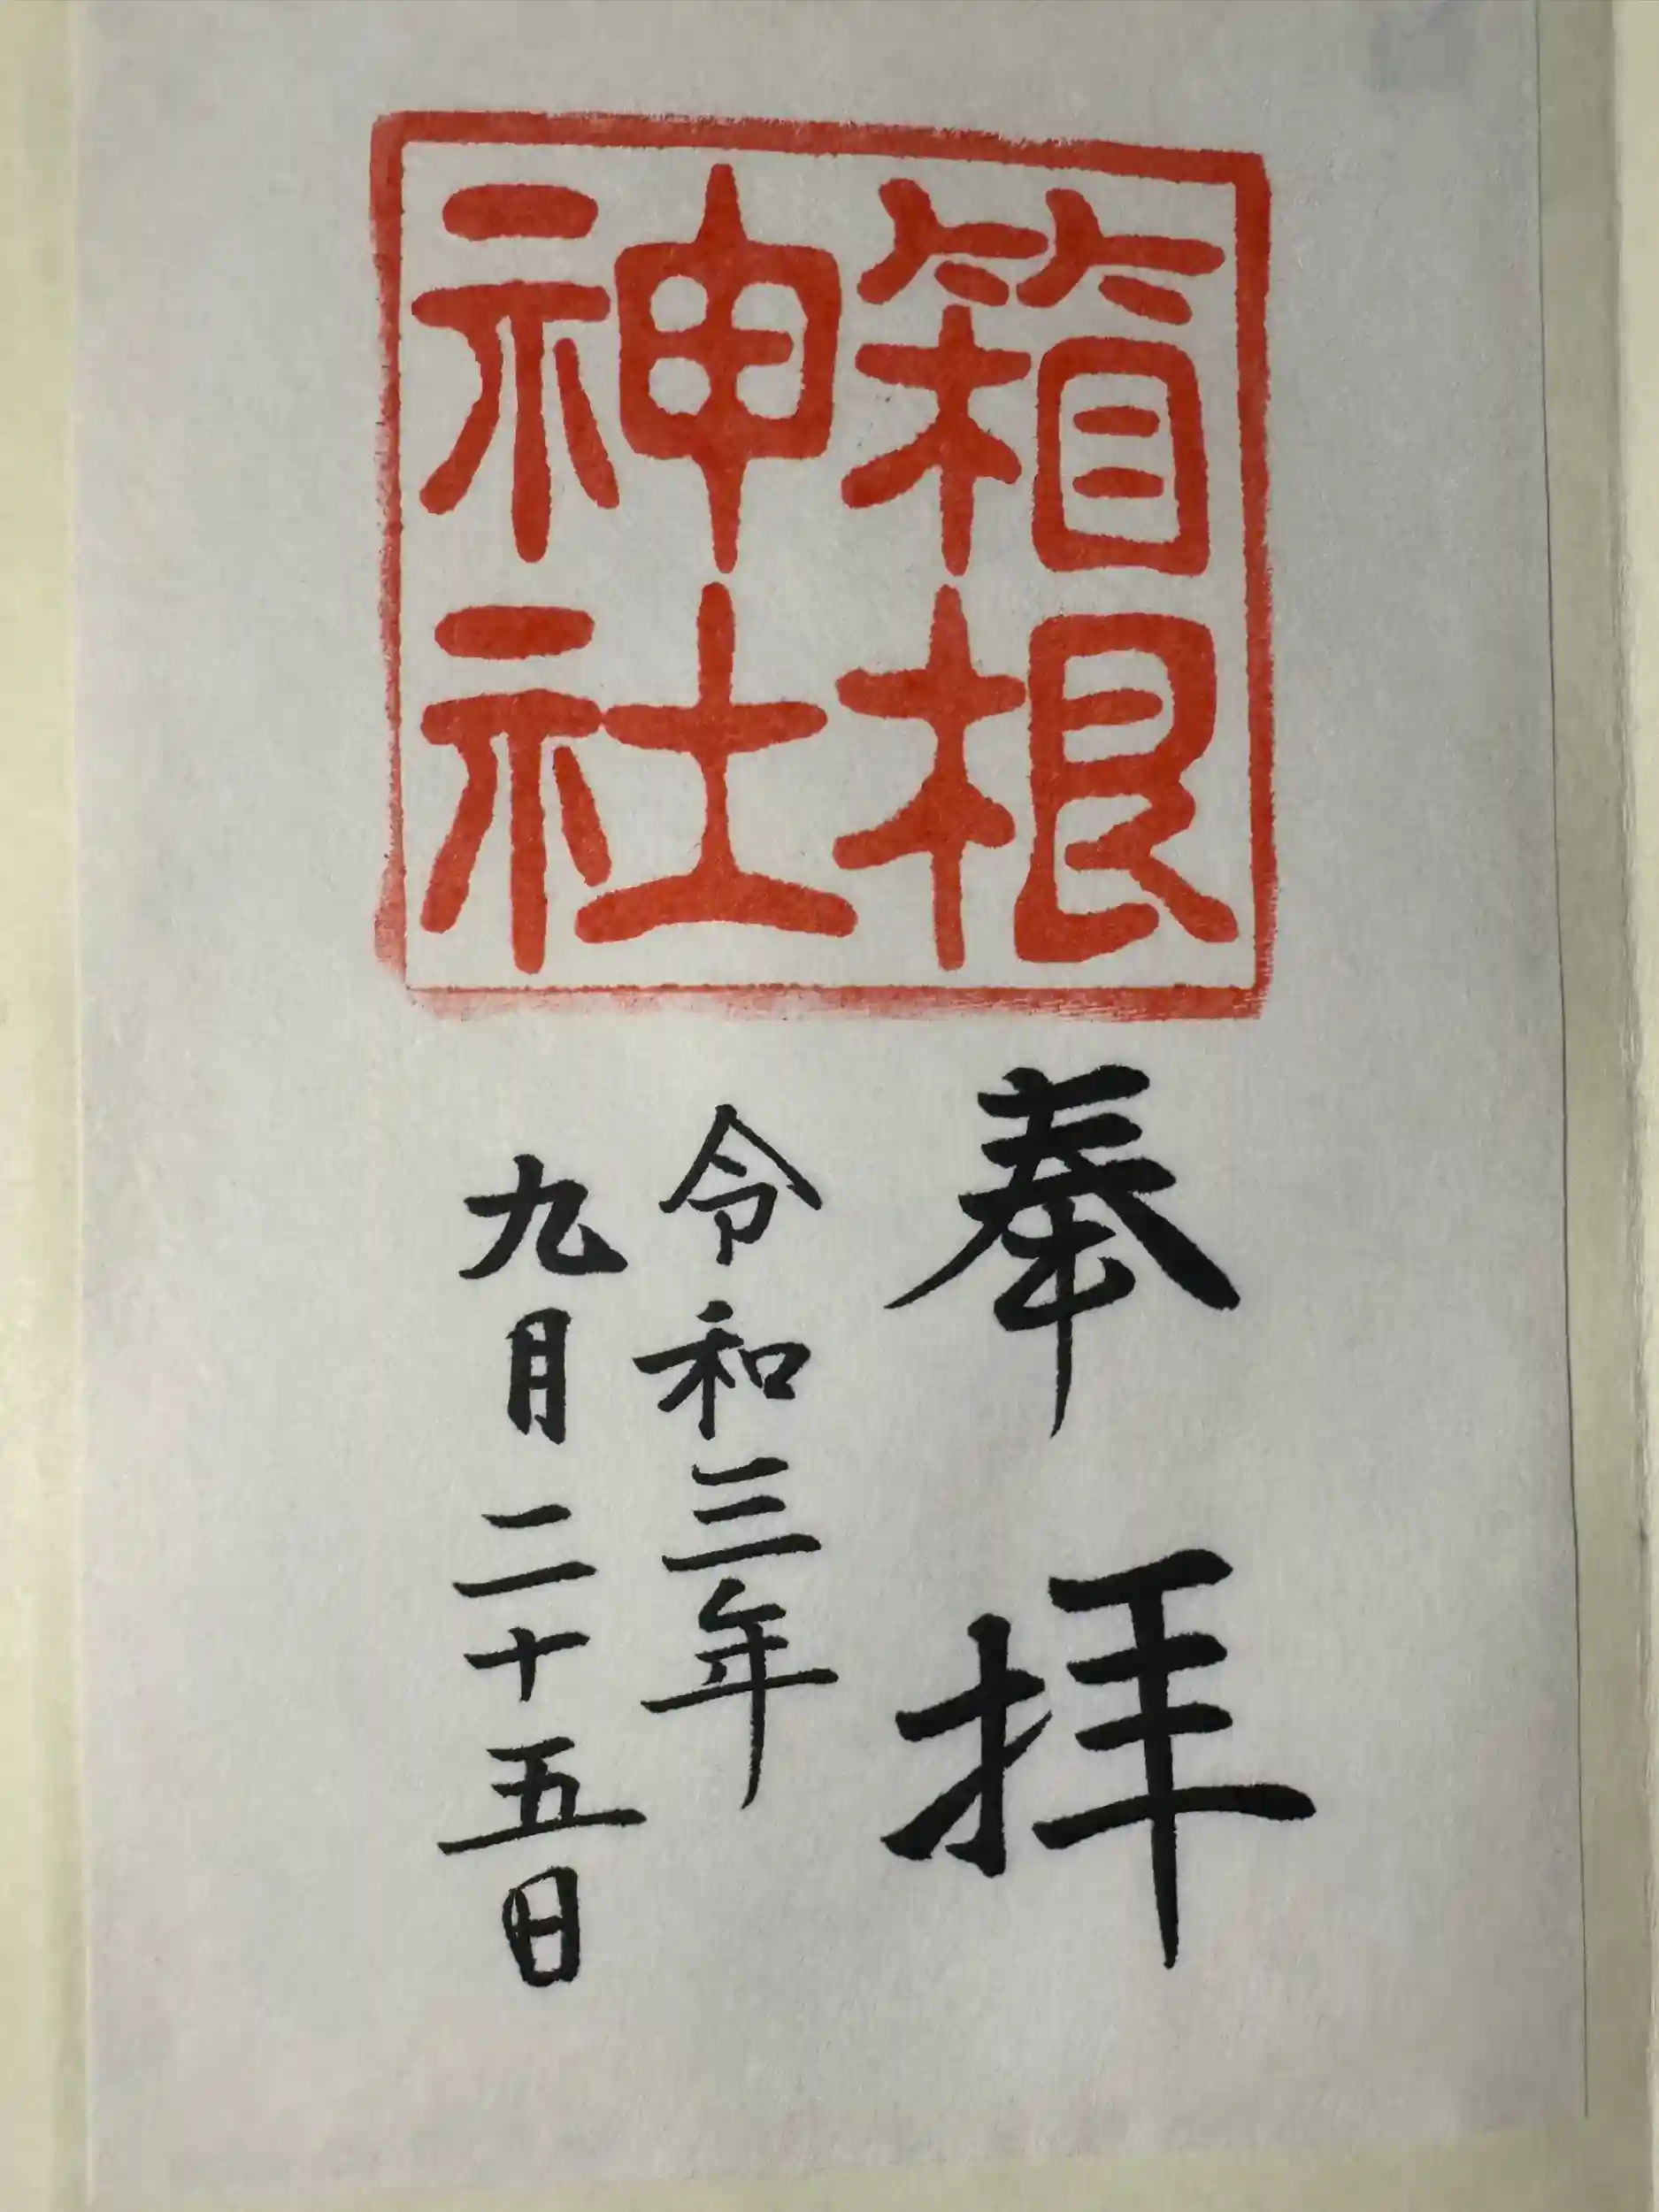 箱根
神社
奉拝
令和三年
九月二十五日